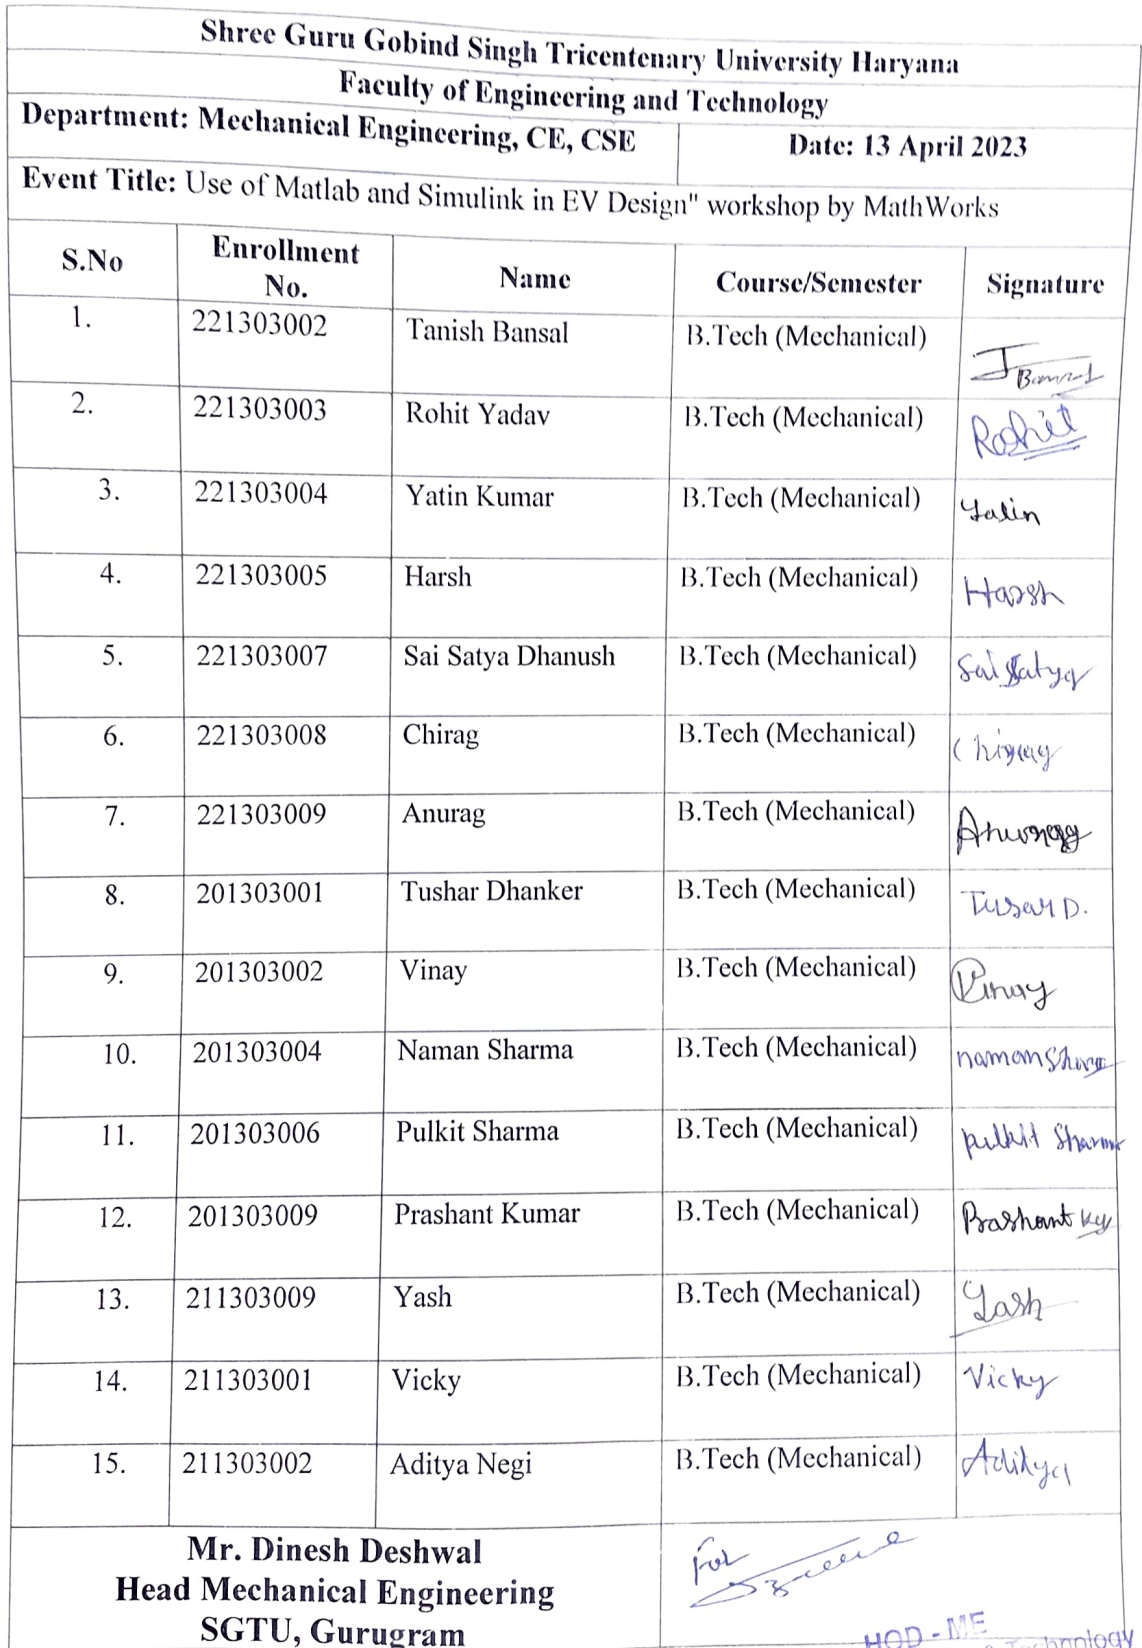 Shree Guru Gobind Singh Tricentenary University Haryana
Faculty of Engineering and Technology
Department: Mechanical Engineering, CE, CSE Date: 13 April 2023
Event Title: Use of Matlab and Simulink in EV Design" workshop by MathWorks
S.No Enrollment No. Name Course/Semester Signature
1. 221303002 Tanish Bansal B.Tech (Mechanical)
2. 221303003 Rohit Yadav B.Tech (Mechanical) Rohit
3. 221303004 Yatin Kumar B.Tech (Mechanical) Yatin
4. 221303005 Harsh B.Tech (Mechanical) Harsh
5. 221303007 Sai Satya Dhanush B.Tech (Mechanical) Sai Satya
6. 221303008 Chirag B.Tech (Mechanical) Chirag
7. 221303009 Anurag B.Tech (Mechanical) Anurag
8. 201303001 Tushar Dhanker B.Tech (Mechanical) Tusar D.
9. 201303002 Vinay B.Tech (Mechanical) Vinay
10. 201303004 Naman Sharma B.Tech (Mechanical) naman
11. 201303006 Pulkit Sharma B.Tech (Mechanical) pulkit Sharma
12. 201303009 Prashant Kumar B.Tech (Mechanical) Prashant
13. 211303009 Yash B.Tech (Mechanical) Yash
14. 211303001 Vicky B.Tech (Mechanical) Vicky
15. 211303002 Aditya Negi B.Tech (Mechanical) Aditya
Mr. Dinesh Deshwal
Head Mechanical Engineering
SGTU, Gurugram
For
HOD - ME
Technology